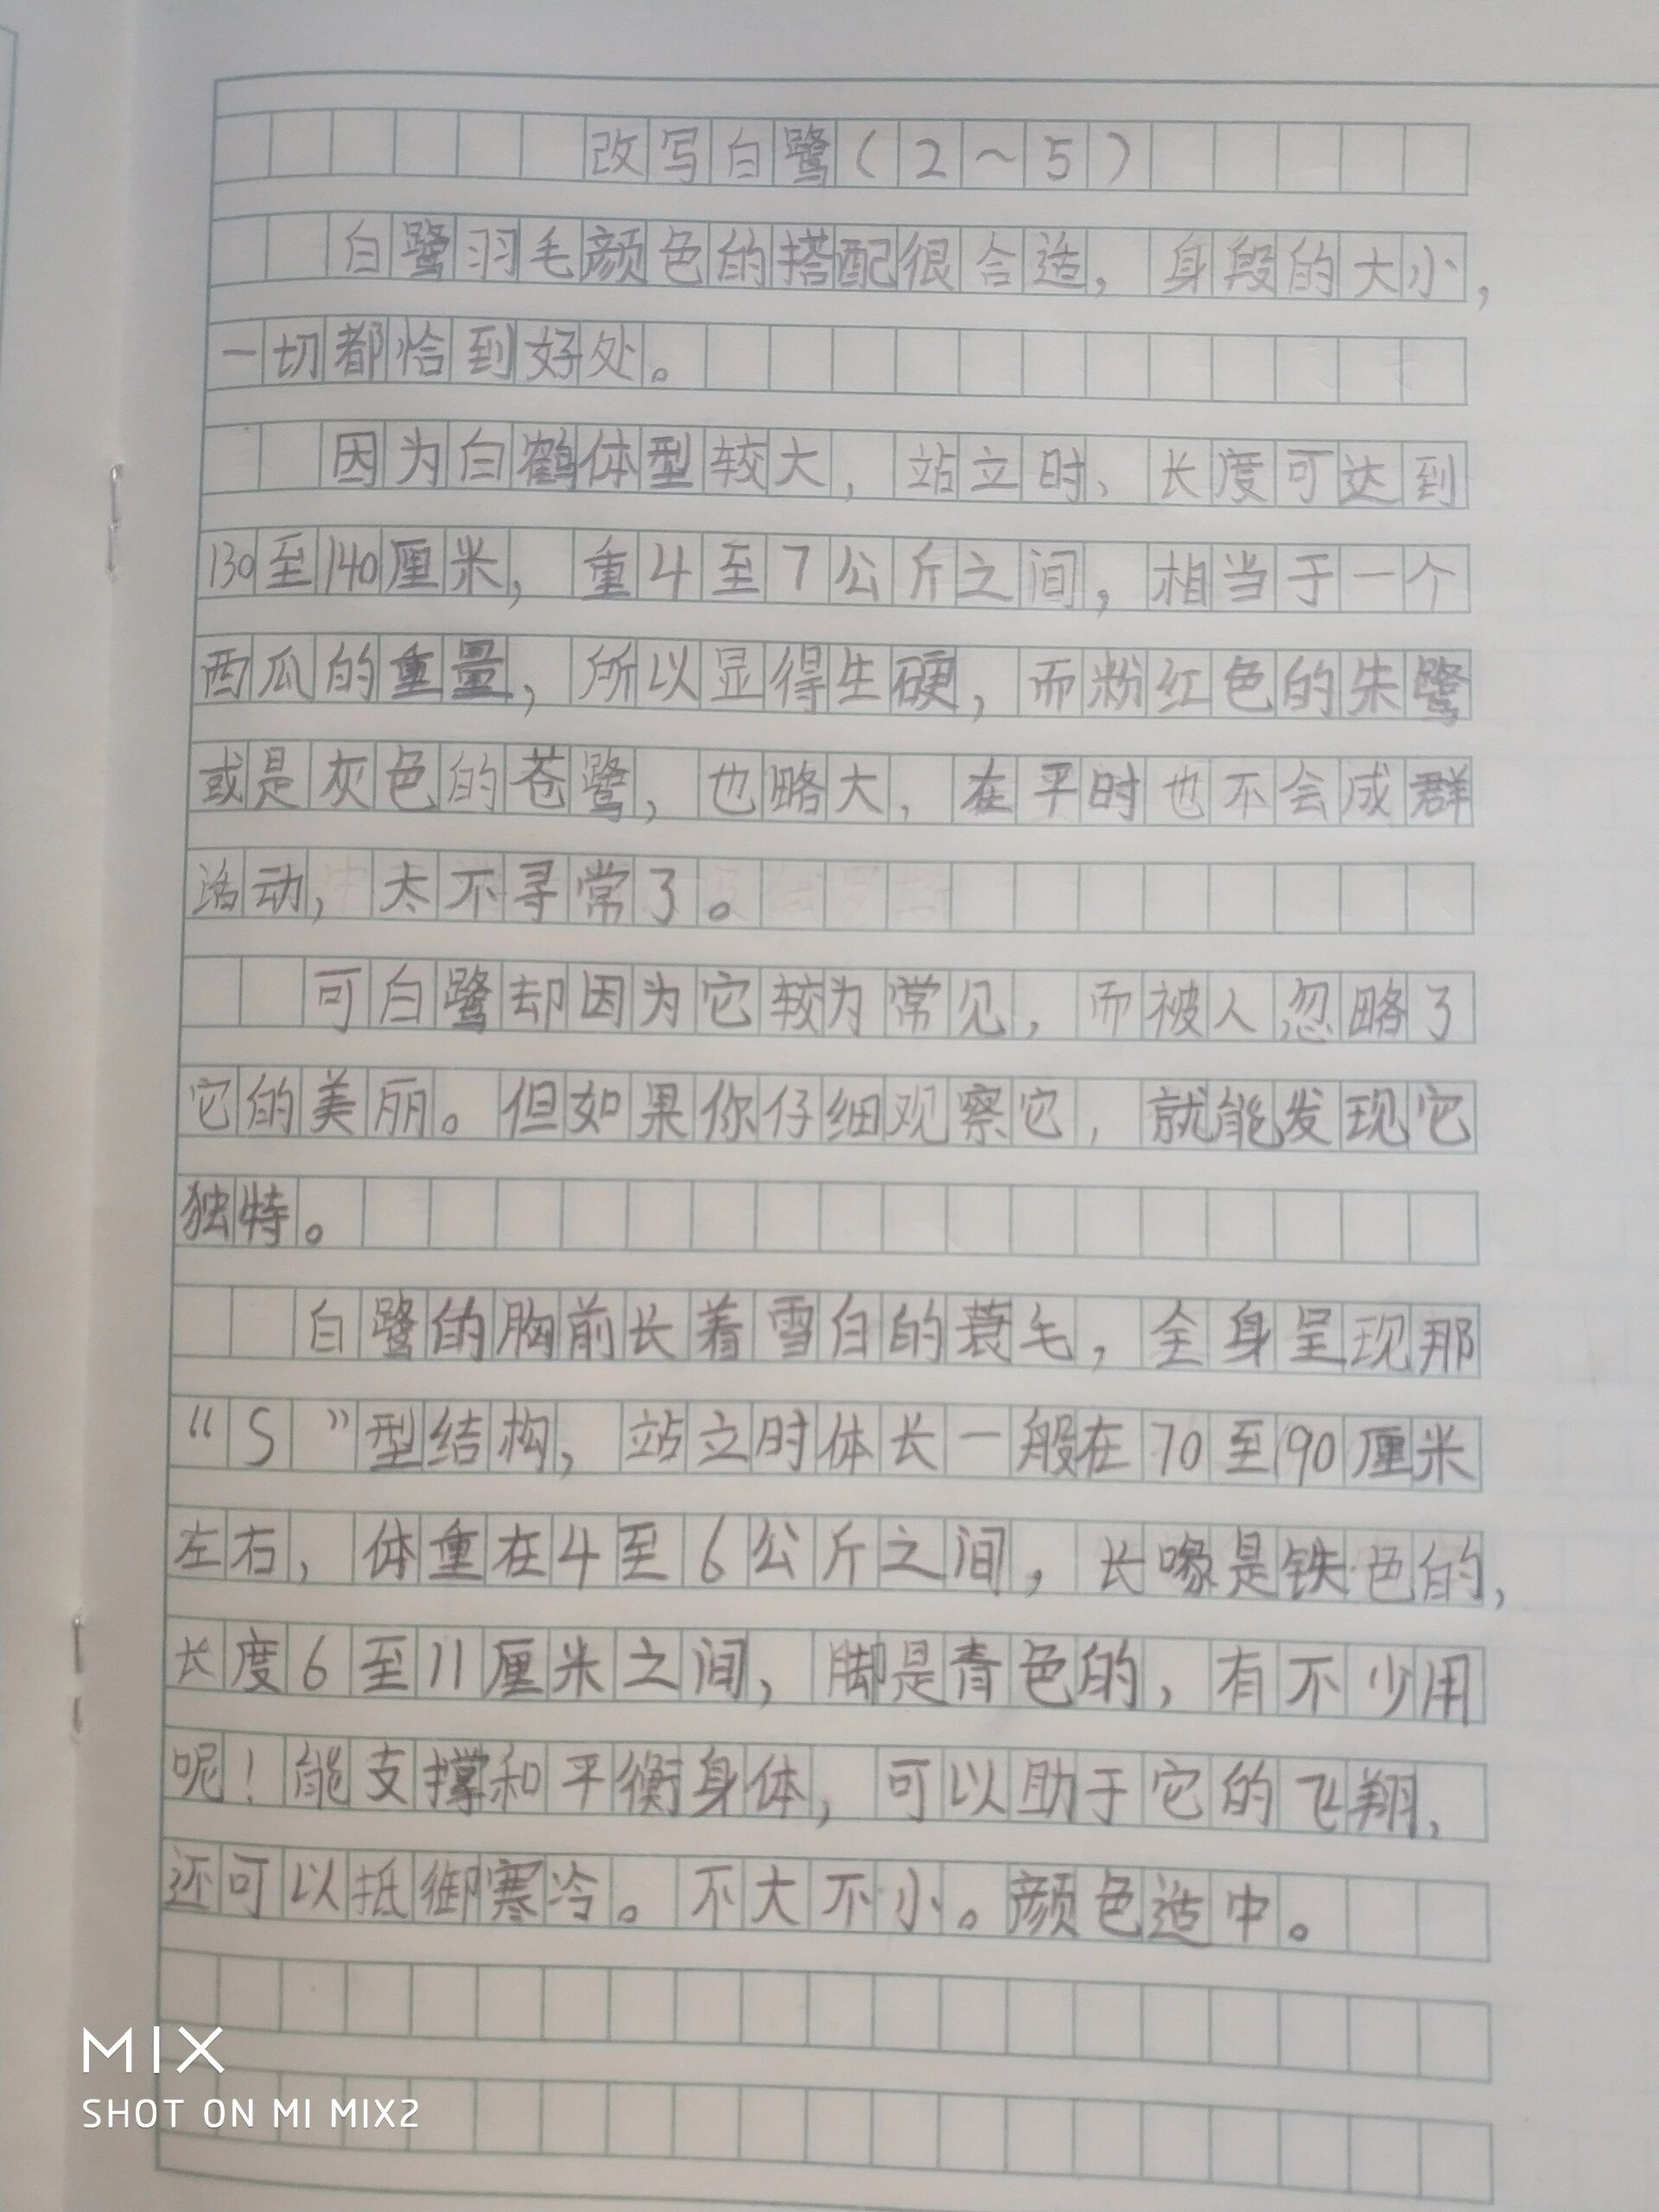 改写白鹭(2～5)
白鹭羽毛颜色的搭配很合适，身段的大小，
一切都恰到好处。
因为白鹤体型较大，站立时、长度可达到
130至140厘米，重4至7公斤之间，相当于一个
西瓜的重量，所以显得生硬，而粉红色的朱鹭
或是灰色的苍鹭，也略大，在平时也不会成群
活动，太不寻常了。
可白鹭却因为它较为常见，而被人忽略了
它的美丽。但如果你仔细观察它，就能发现它
独特。
白鹭的胸前长着雪白的蓑毛，全身呈现那
“S”型结构，站立时体长一般在70至90厘米
左右，体重在4至6公斤之间，长喙是铁色的，
长度6至11厘米之间，脚是青色的，有不少用
呢！能支撑和平衡身体，可以助于它的飞翔，
还可以抵御寒冷。不大不小。颜色适中。
MIX
SHOT ON MI MIX2